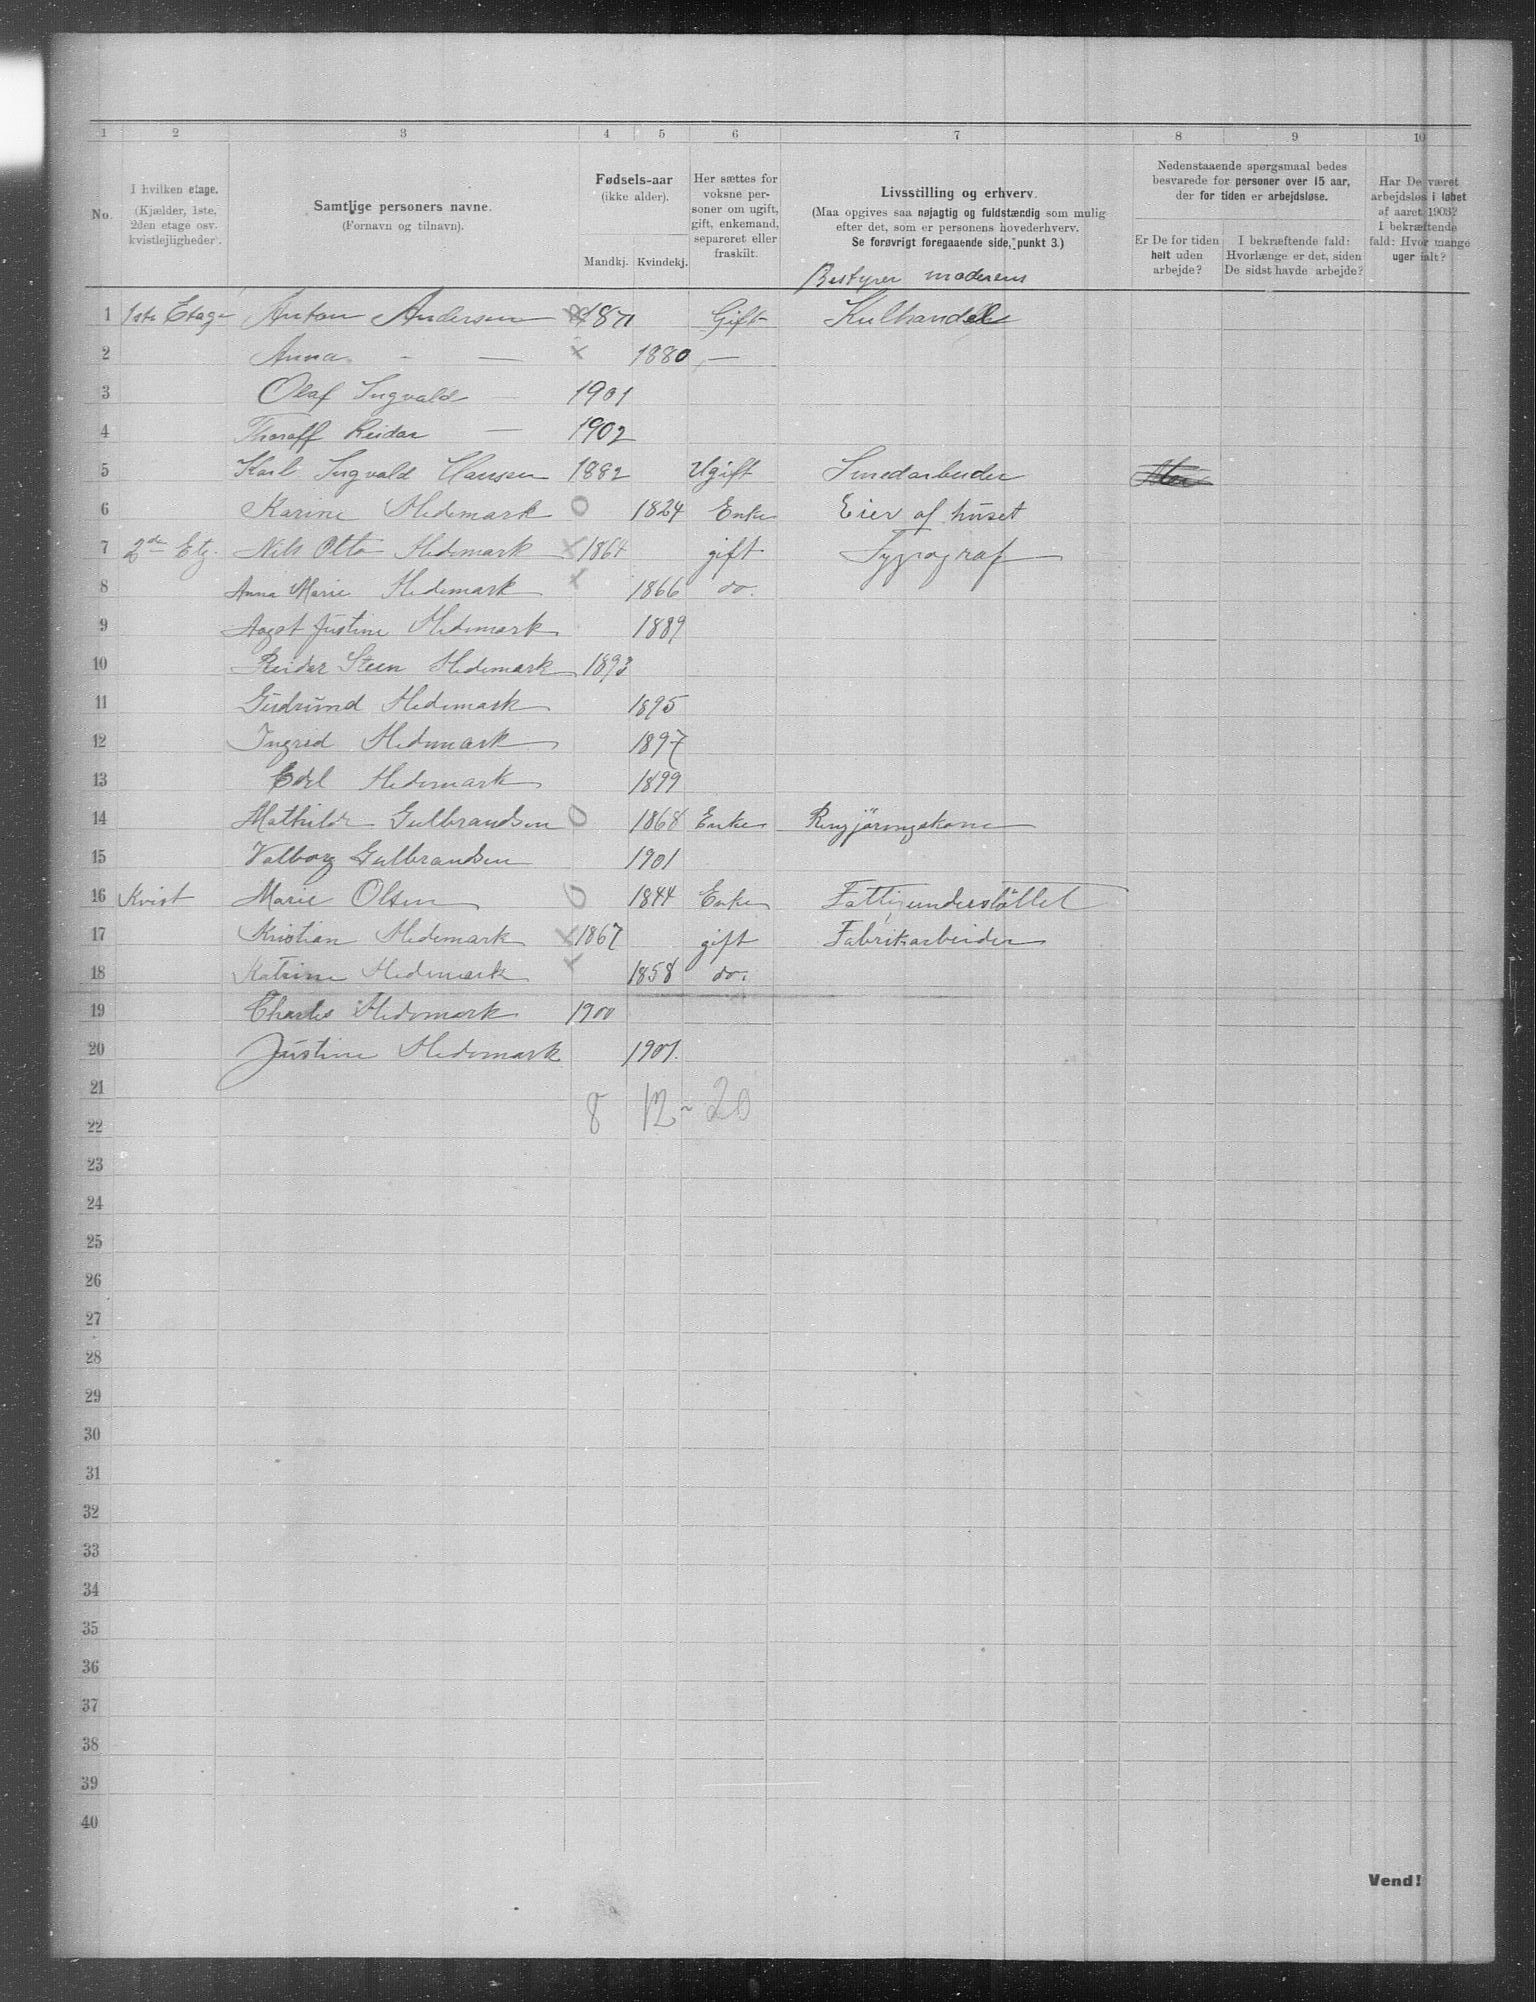 1 2 3 4 5 6 7 8 9 10
No.
I hvilken etage.
(Kjælder, 1ste, 2den etage osv. kvistlejligheder).
Samtlige personers navne.
(Fornavn og tilnavn).
Fødsels-aar
(ikke alder).
Mandkj. Kvindekj.
Her sættes for voksne personer om ugift, gift, enkemand, separeret eller fraskilt.
Livsstilling og erhverv.
(Maa opgives saa nøjagtig og fuldstændig som mulig efter det, som er personens hovederhverv.
Se forøvrigt foregaaende side, punkt 3.)
Nedenstaaende spørgsmaal bedes besvarede for personer over 15 aar, der for tiden er arbejdsløse.
Er De for tiden helt uden arbejde?
I bekræftende fald: Hvorlænge er det, siden De sidst havde arbejde?
Har De været arbejdsløs i løbet af aaret 1903? I bekræftende fald: Hvor mange uger ialt?
Bestyrer moderens
1 1ste Etage Anton Andersen 1871 Gift Kulhandel
2 Anna - — x 1880 —
3 Olaf Ingvald — 1901
4 Thoralf Reidar — 1902
5 Karl Ingvald Hansen 1882 Ugift Smedarbeider
6 Karine Hedemark O 1824 Enke Eier af huset
7 2den Etg. Nils Otto Hedemark x 1864 gift Typograf
8 Anna Marie Hedemark x 1866 do.
9 Aagot Justine Hedemark 1889
10 Reidar Steen Hedemark 1893
11 Gudrund Hedemark 1895
12 Ingrid Hedemark 1897
13 Edel Hedemark 1899
14 Mathilde Gulbrandsen O 1868 Enke Rengjøringskone
15 Valborg Gulbrandsen 1901
16 Kvist Marie Olsen O 1844 Enke Fattigunderstøttet
17 Kristian Hedemark x 1867 gift Fabrikarbeider
18 Katrine Hedemark x 1858 do.
19 Charles Hedemark 1900
20 Justine Hedemark 1901.
21
8 12 - 20
22
23
24
25
26
27
28
29
30
31
32
33
34
35
36
37
38
39
40
Vend!